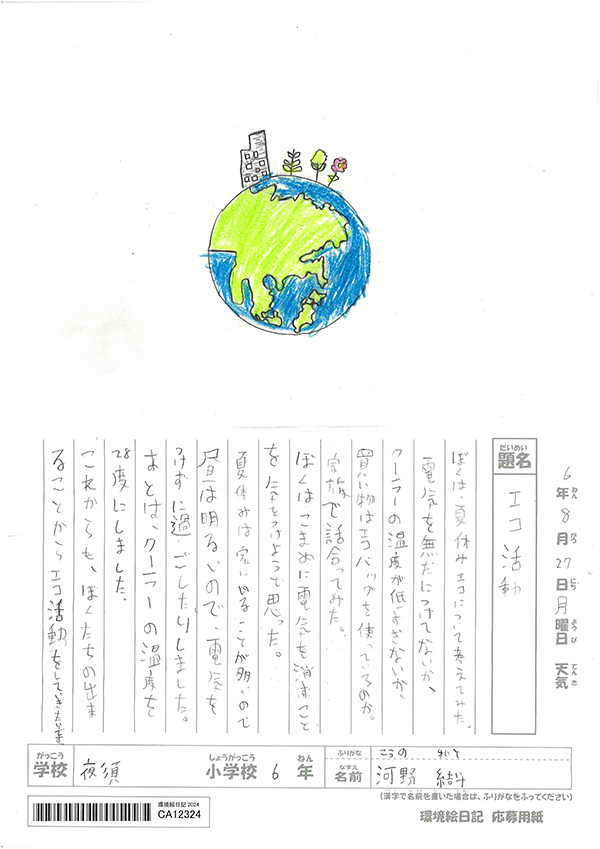 6年8月27日月曜日 天気
年ねん
月がつ
日にち
曜日ようび
天気てんき
だいめい
題名
エコ活動
ぼくは、夏休みエコについて考えてみた。
電気を無だにつけてないか、
クーラーの温度が低すぎないか、
買い物はエコバッグを使っているのか。
家族で話合ってみた。
ぼくはこまめに電気を消すこと
を気をつけようと思った。
夏休みは家にいることが多いので
昼は明るいので、電気を
つけずに過ごしたりしました。
あとは、クーラーの温度を
28度にしました。
これからも、ぼくたちの出来
ることからエコ活動をしていきたいです
がっこう
学校
夜須
しょうがっこう
小学校
6
ねん
年
ふりがな
こうの
なまえ
名前
河野 結斗
(漢字で名前を書いた場合は、ふりがなをふってください)
環境絵日記2024
CA12324
環境絵日記 応募用紙